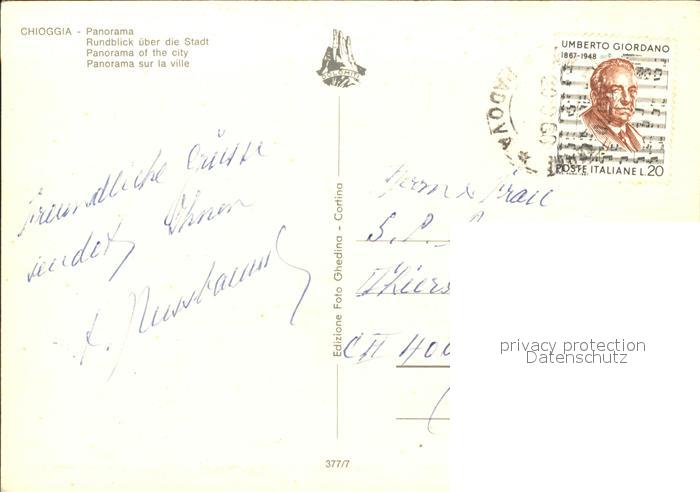 CHIOGGIA - Panorama
Rundblick über die Stadt
Panorama of the city
Panorama sur la ville
DOLOMITI
UMBERTO GIORDANO
1867-1948
POSTE ITALIANE L.20
PADOVA
freundliche Grüsse
sendet Ihnen
Nussbaum
Edizione Foto Ghedina - Cortina
Herrn & Frau
S. P.
Thiers
CH 400
377/7
privacy protection
Datenschutz